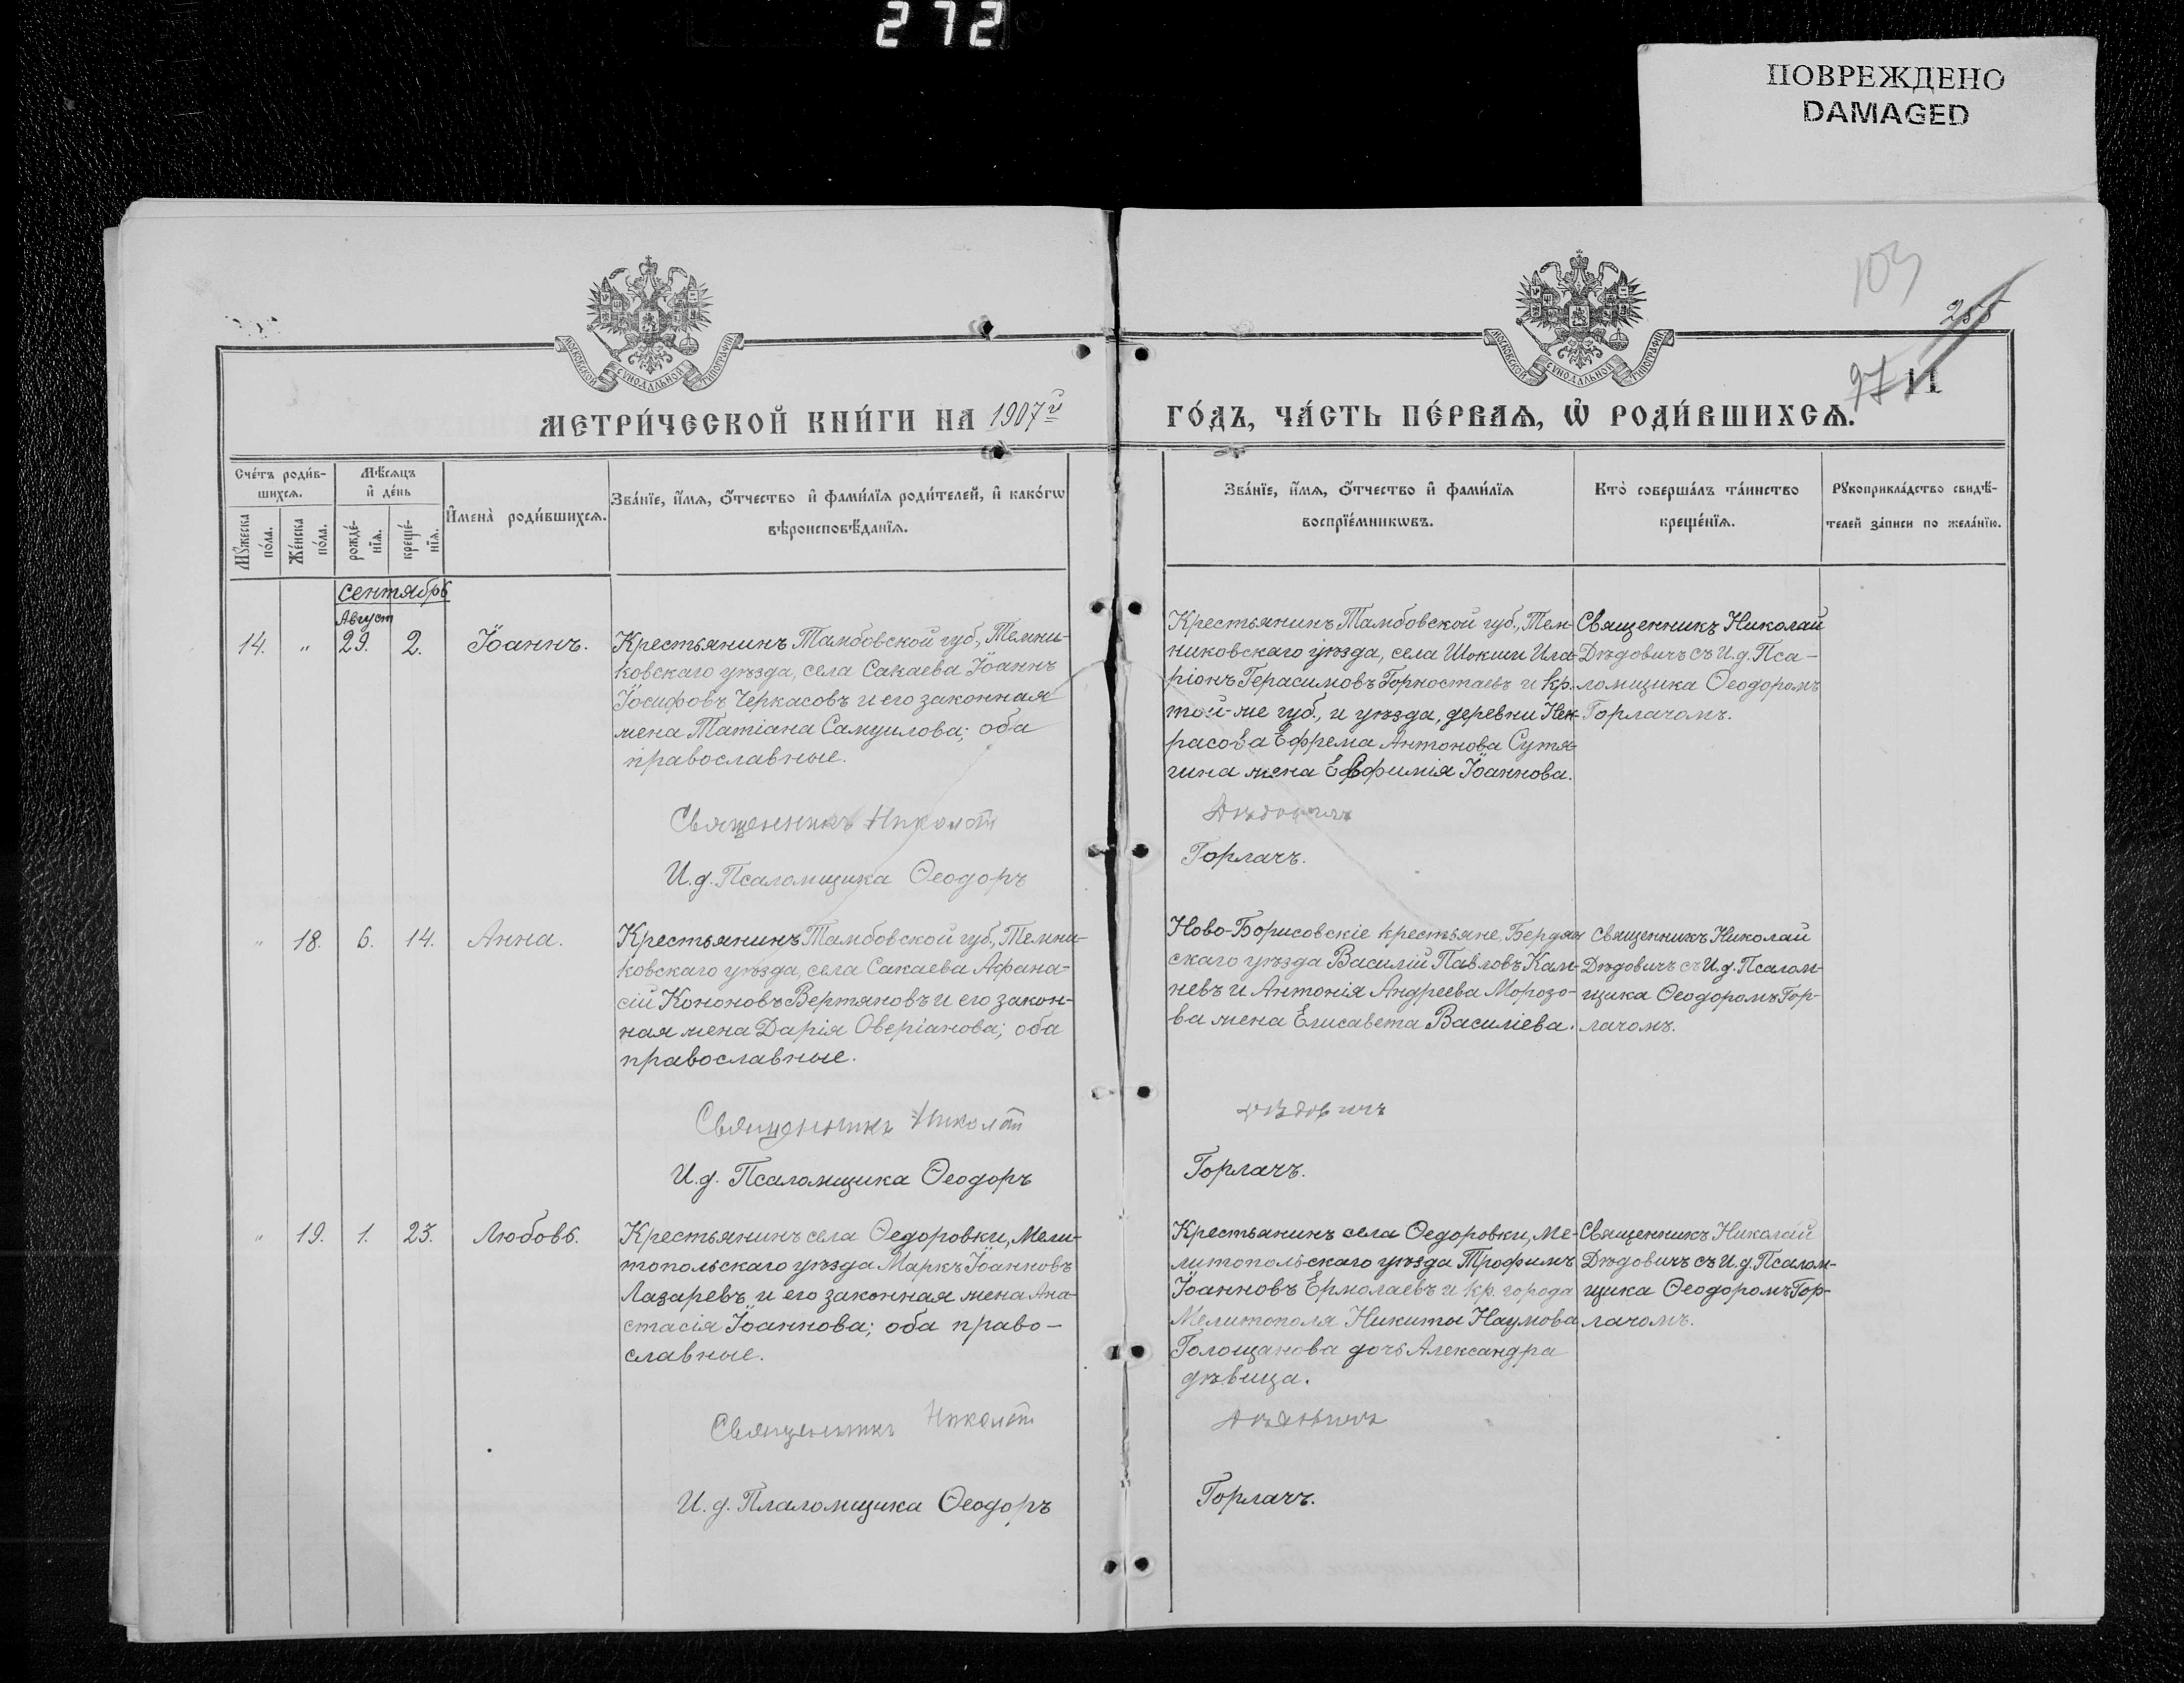 272
ПОВРЕЖДЕНО
DAMAGED
103
255
97
11
МОСКОВСКОЙ СѴНОДАЛЬНОЙ ТИПОГРАФІИ
МОСКОВСКОЙ СѴНОДАЛЬНОЙ ТИПОГРАФІИ
МЕТРИ́ЧЕСКОЙ КНИ́ГИ НА 1907й
ГО́ДЪ, ЧА́СТЬ ПЕ́РВАѦ, Ѡ РОДИ́ВШИХСѦ.
Сче́тъ роди́в-
шихсѧ.
Мꙋ́жеска
по́ла.
Же́нска
по́ла.
Мѣ́сѧцъ
и҆ де́нь
рожде́-
нїѧ.
креще́-
нїѧ.
И҆мена̀ роди́вшихсѧ.
Зва́нїе, и҆́мѧ, ѻ҆́тчество и҆ фами́лїѧ роди́телей, и҆ како́гѡ
вѣроисповѣ́данїѧ.
Зва́нїе, и҆́мѧ, ѻ҆́тчество и҆ фами́лїѧ
воспрїе́мникѡвъ.
Кто̀ соверша́лъ та́инство
креще́нїѧ.
Рꙋкоприкла́дство свидѣ́-
телей за́писи по жела́нїю.
Сентябрь
Август
14.
"
29.
2.
Іоаннъ.
Крестьянинъ Тамбовской губ., Темни-
ковскаго уѣзда, села Сакаева Іоаннъ
Іосифовъ Черкасовъ и его законная
жена Татіана Самуилова; оба
православные.
Священникъ Николай
И.д. Псаломщика Ѳеодоръ
Крестьянинъ Тамбовской губ., Тем-
никовскаго уѣзда, села Шокши Ила-
ріонъ Герасимовъ Горностаевъ и кр.
той-же губ., и уѣзда, деревни Нек-
расова Ефрема Антонова Сутя-
гина жена Евфимія Іоаннова.
Дѣдовичъ
Горлачъ.
Священникъ Николай
Дѣдовичъ съ И.д. Пса-
ломщика Ѳеодоромъ
Горлачомъ.
"
18.
6.
14.
Анна.
Крестьянинъ Тамбовской губ., Темни-
ковскаго уѣзда, села Сакаева Афана-
сій Кононовъ Вертяновъ и его закон-
ная жена Дарія Оверіанова; оба
православные.
Священникъ Николай
И.д. Псаломщика Ѳеодоръ
Ново-Борисовскіе крестьяне, Бердян
скаго уѣзда Василій Павловъ Кам-
невъ и Антонія Андреева Морозо-
ва жена Елисавета Василіева.
Дѣдовичъ
Горлачъ.
Священникъ Николай
Дѣдовичъ съ И.д. Псалом-
щика Ѳеодоромъ Гор-
лачомъ.
"
19.
1.
23.
Любовь.
Крестьянинъ села Ѳедоровки, Мели-
топольскаго уѣзда Маркъ Іоанновъ
Лазаревъ и его законная жена Ана-
стасія Іоаннова; оба право-
славные.
Священникъ Николай
И.д. Плаломщика Ѳеодоръ
Крестьянинъ села Ѳедоровки, Ме-
литопольскаго уѣзда Трофимъ
Іоанновъ Ермолаевъ и кр. города
Мелитополя Никиты Наумова
Голощанова дочь Александра
дѣвица.
Дѣдовичъ
Горлачъ.
Священникъ Николай
Дѣдовичъ съ И.д. Псалом-
щика Ѳеодоромъ Гор-
лачомъ.